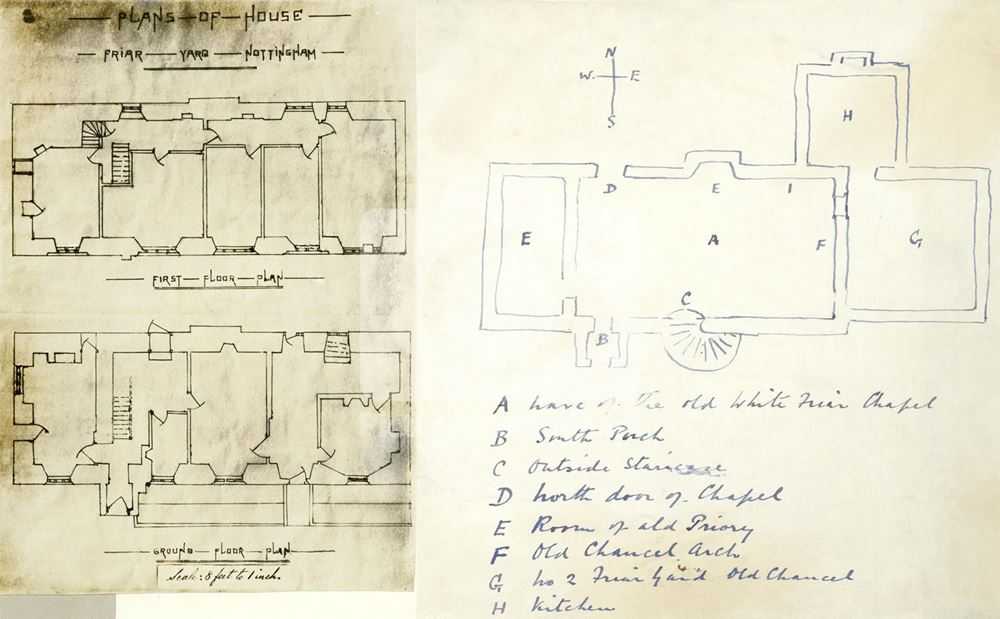 PLANS OF HOUSE
FRIAR YARD NOTTINGHAM
FIRST FLOOR PLAN
GROUND FLOOR PLAN
Scale: 8 feet to 1 inch.
N
W. E
S
H
D E I
E A F G
C
B
A Nave of the old White Friar Chapel
B South Porch
C Outside Staircase
D North door of Chapel
E Room of old Priory
F Old Chancel Arch
G No 2 Friar Yard Old Chancel
H Kitchen